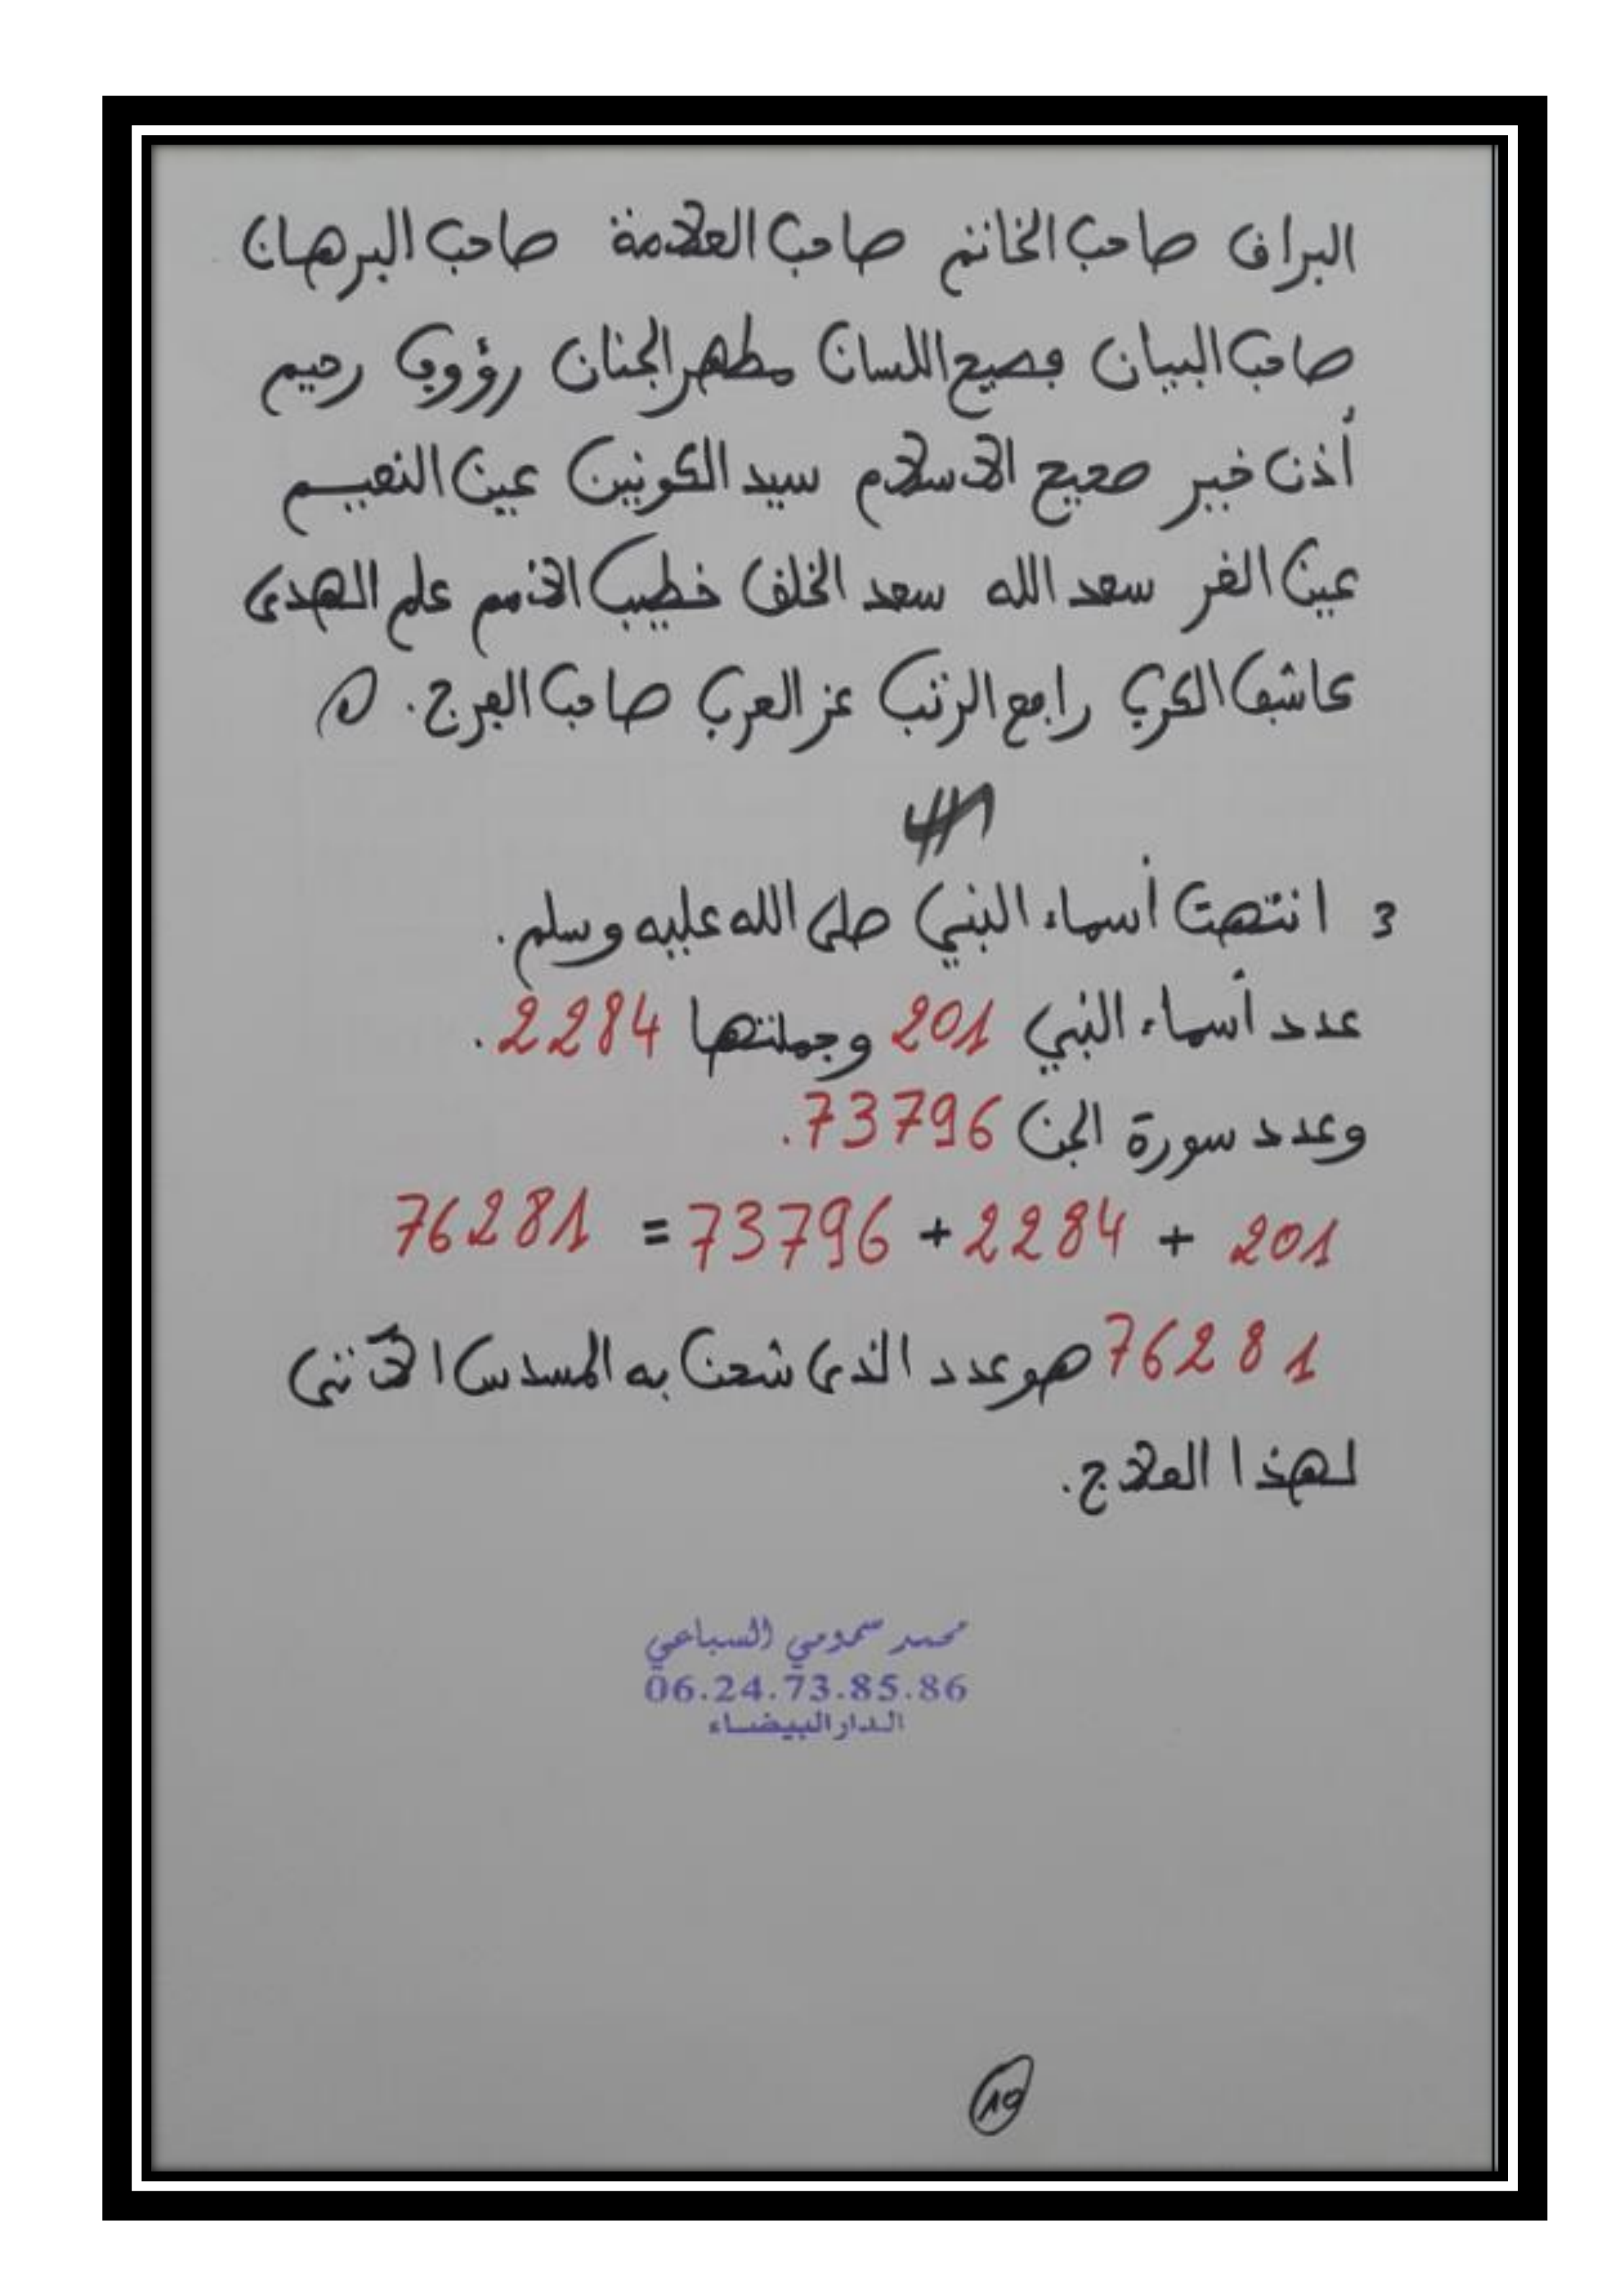 البراق صاحب الخاتم صاحب العلامة صاحب البرهان
صاحب البيان فصيح اللسان مطهر الجنان رؤوف رحيم
أذن خير صحيح الاسلام سيد الكونين عين النعيم
عين الغر سعد الله سعد الخلق خطيب الأمم علم الهدى
كاشف الكرب رافع الرتب عز العرب صاحب الفرج. ه
3 انتهت أسماء النبي صلى الله عليه وسلم.
عدد أسماء النبي 201 وجملتها 2284.
وعدد سورة الجن 73796.
201 + 2284 + 73796 = 76281
76281 هو عدد الذى شحن به المسدس الآتى
لهذا العلاج.
محمد سمومي السباعي
06.24.73.85.86
الدار البيضاء
10